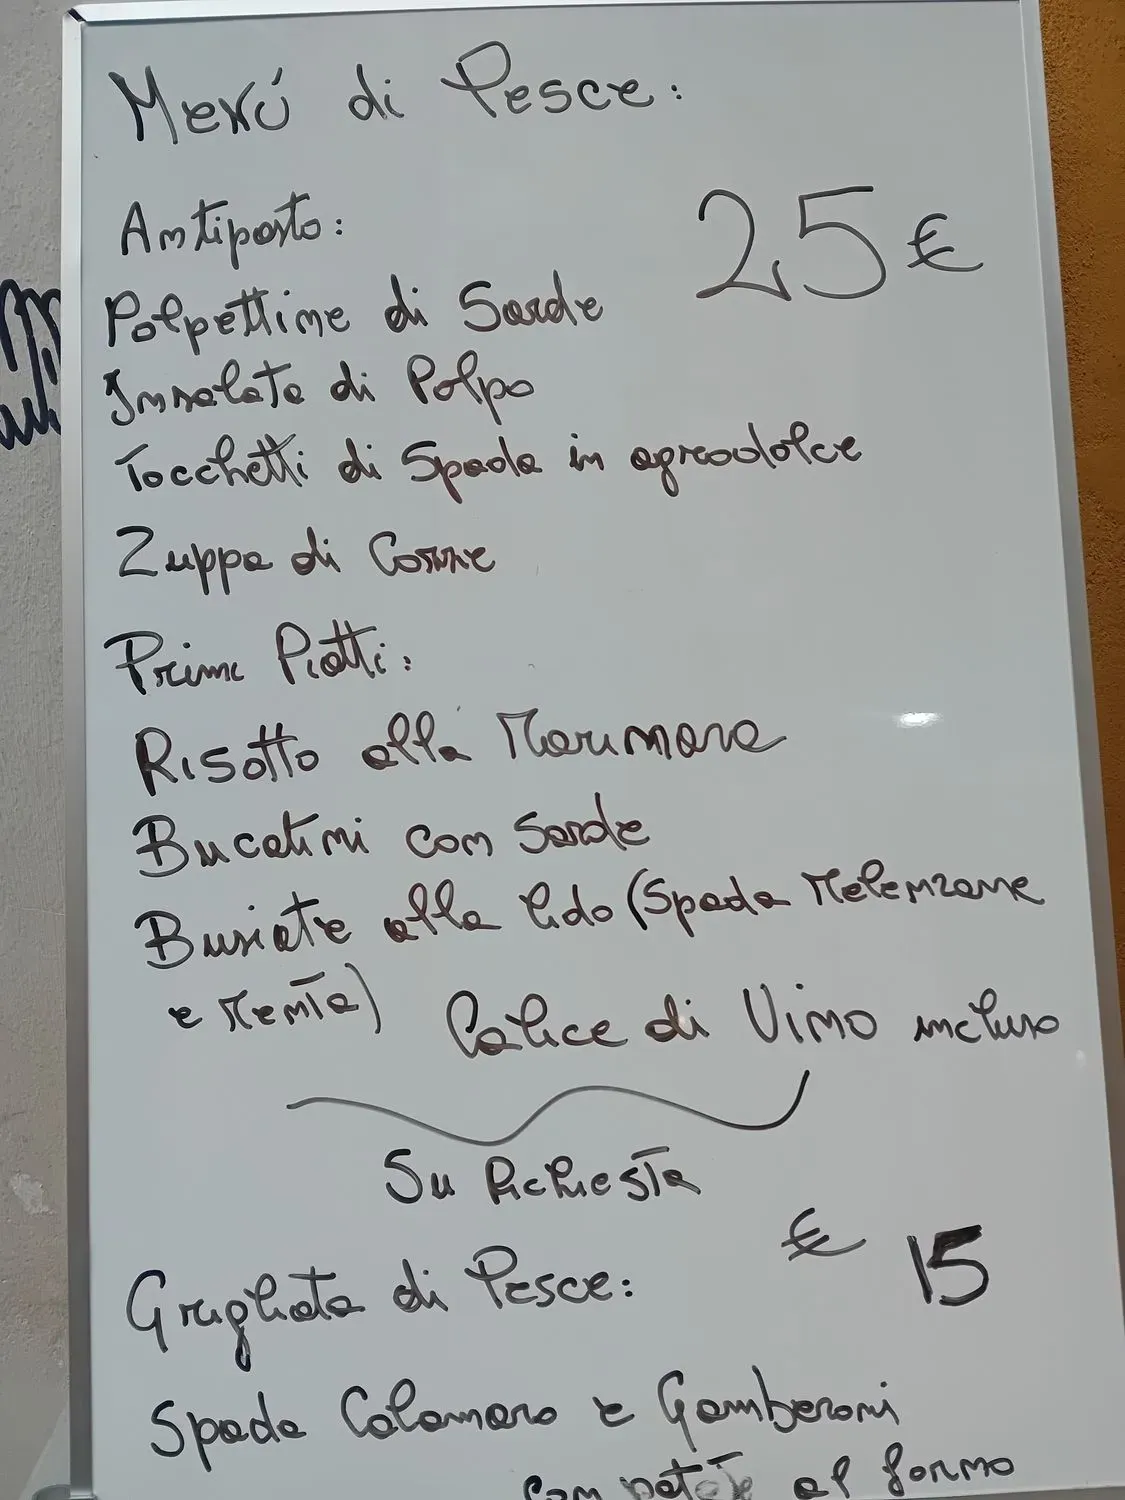 Menú di Pesce:
Antipasto:
25 €
Polpettine di Sarde
Insalata di Polpo
Tocchetti di Spada in agrodolce
Zuppa di Cozze
Primi Piatti:
Risotto alla Marinara
Bucatini con Sarde
Busiate alla lido (Spada Melenzane
e Menta)
Calice di Vino incluso
Su Richiesta
€ 15
Grigliata di Pesce:
Spada Calamaro e Gamberoni
con patate al forno